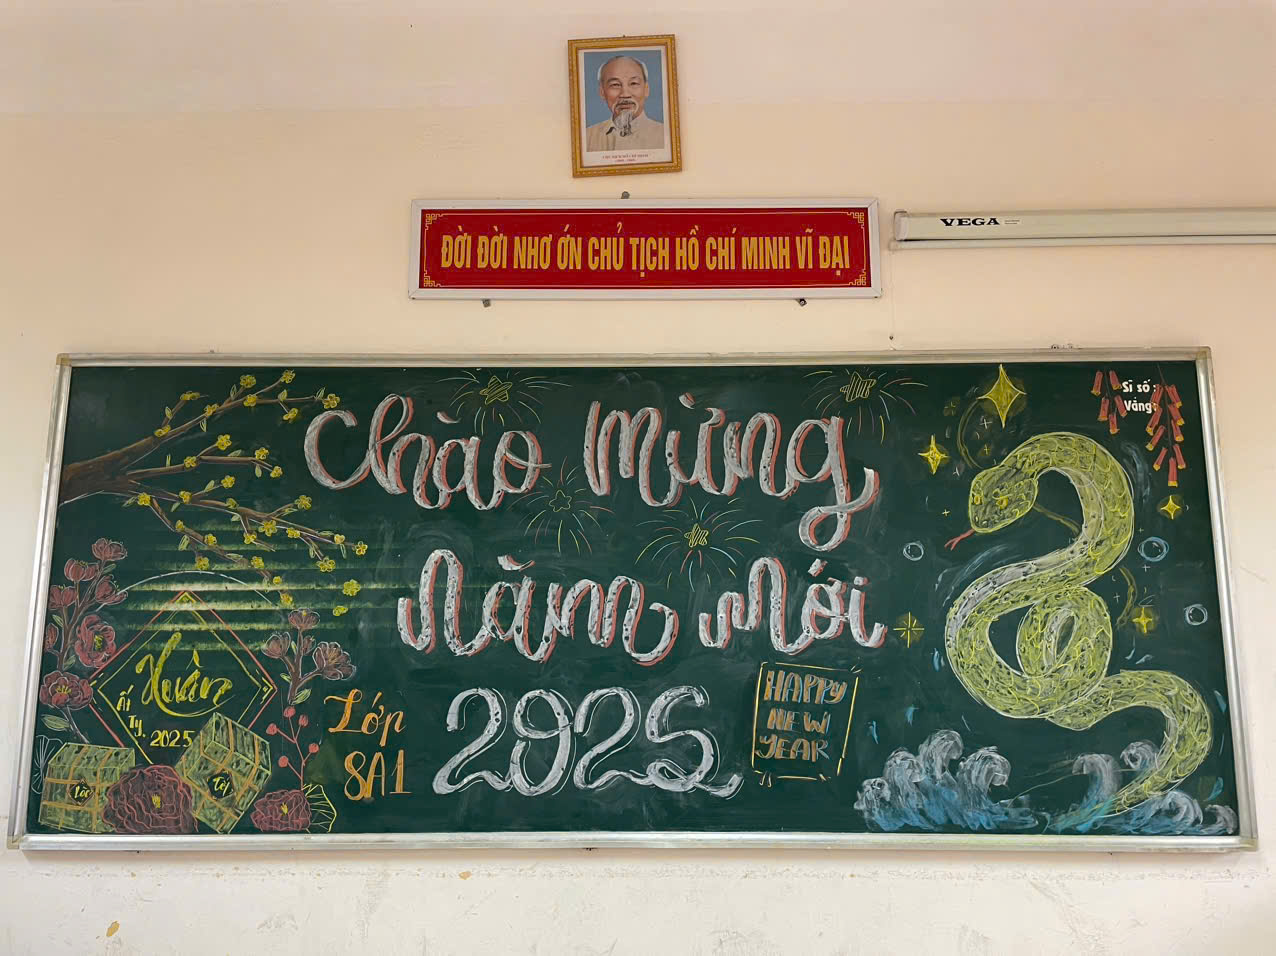 CHỦ TỊCH HỒ CHÍ MINH
ĐỜI ĐỜI NHỚ ƠN CHỦ TỊCH HỒ CHÍ MINH VĨ ĐẠI
VEGA
Sĩ số:
Vắng:
Chào mừng
năm mới
2025
HAPPY
NEW
YEAR
Xuân
Ất
Tỵ.
2025
Lộc
Tết
Lớp
8A1